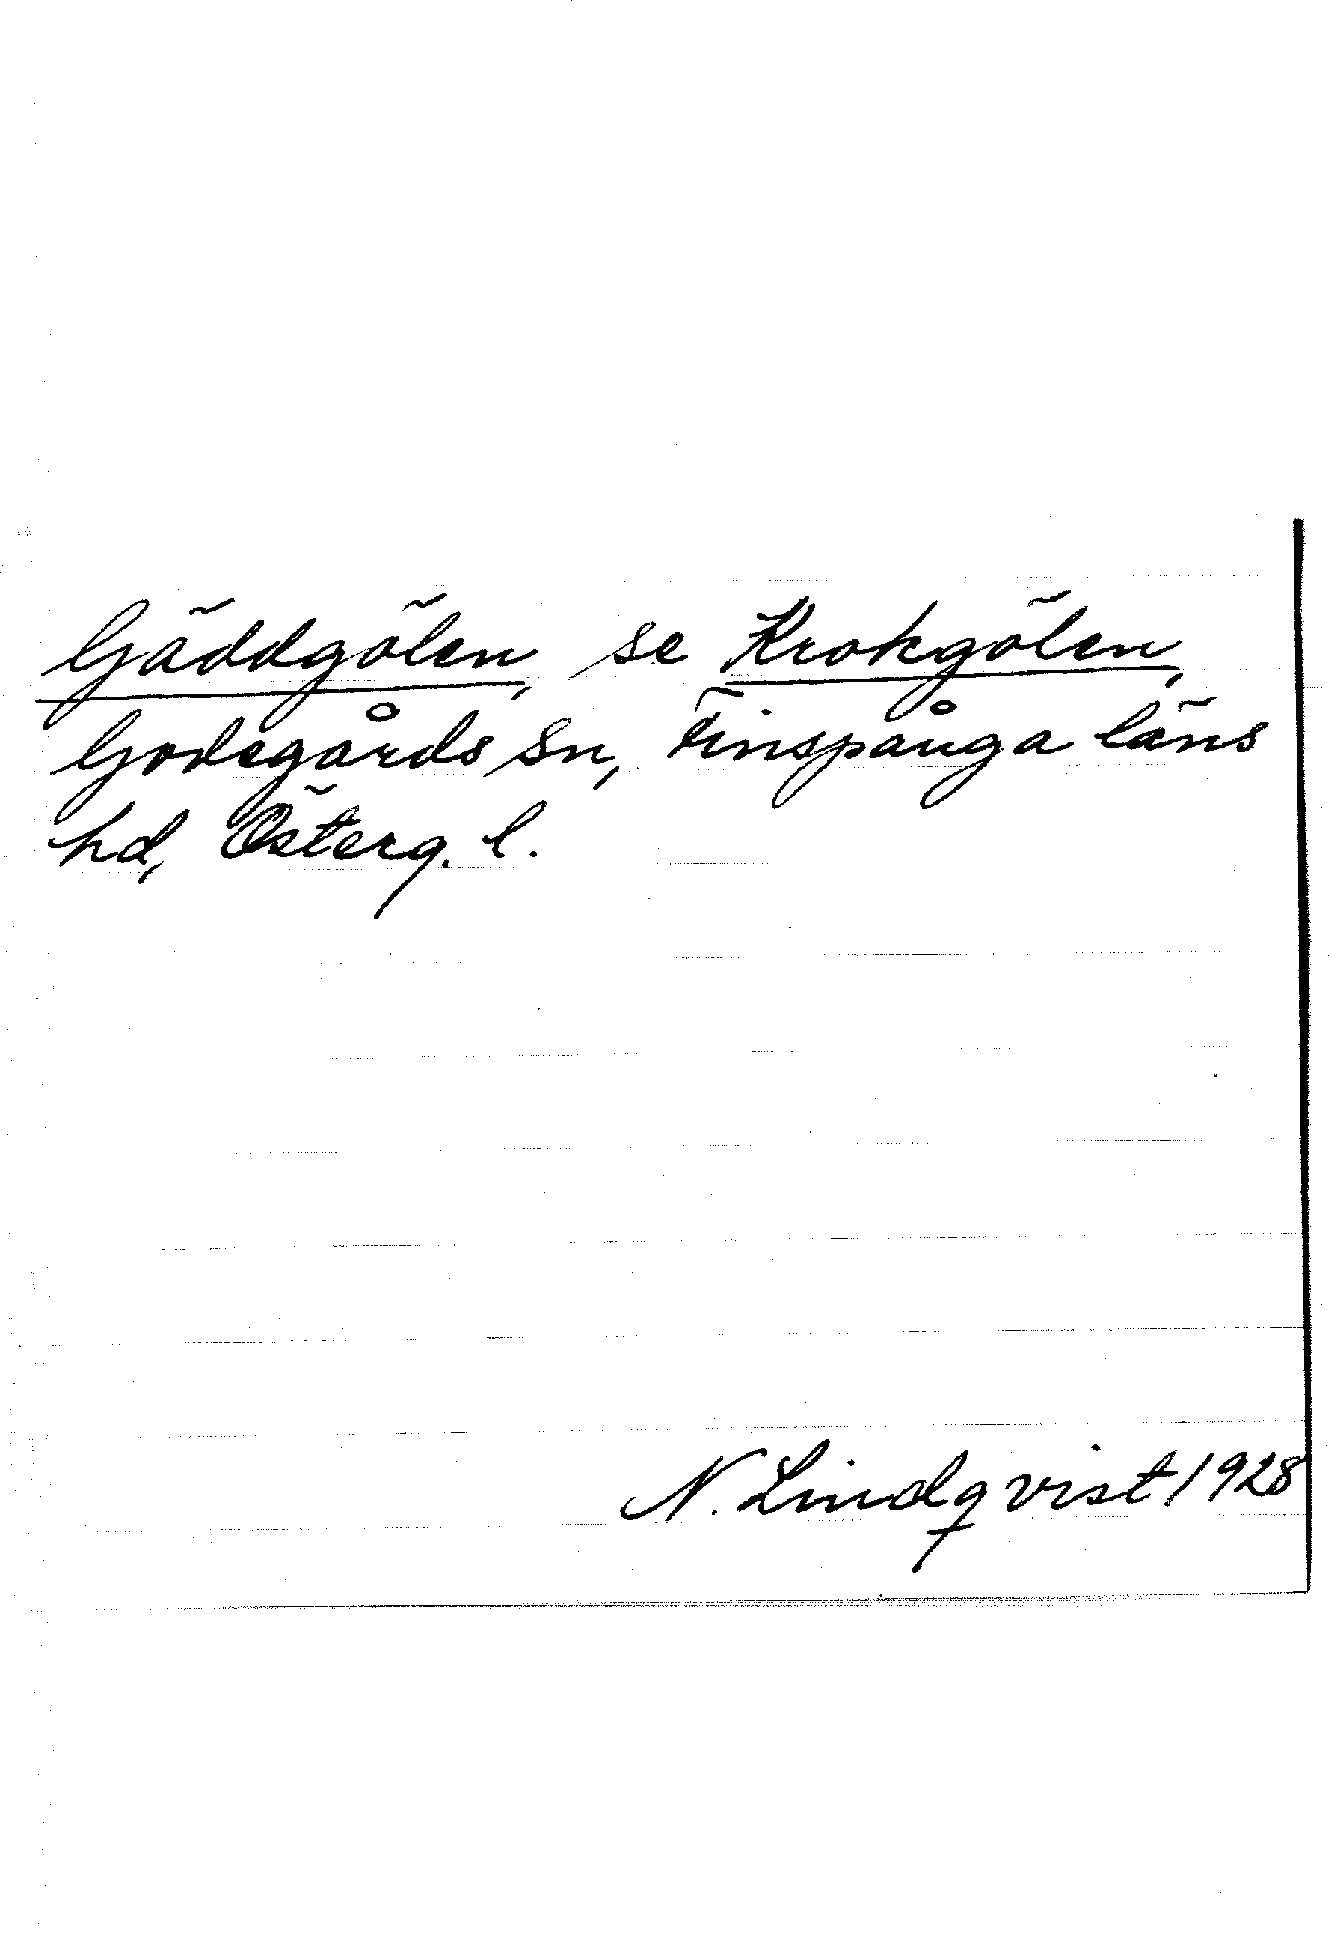 Gäddgölen, se Krokgölen,
Godegårds sn, Finspånga läns
hd, Österg. l.
N. Lindqvist 1928